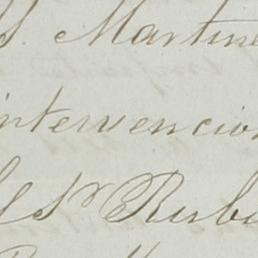 S. Martine
intervencion
el Sr Rubi